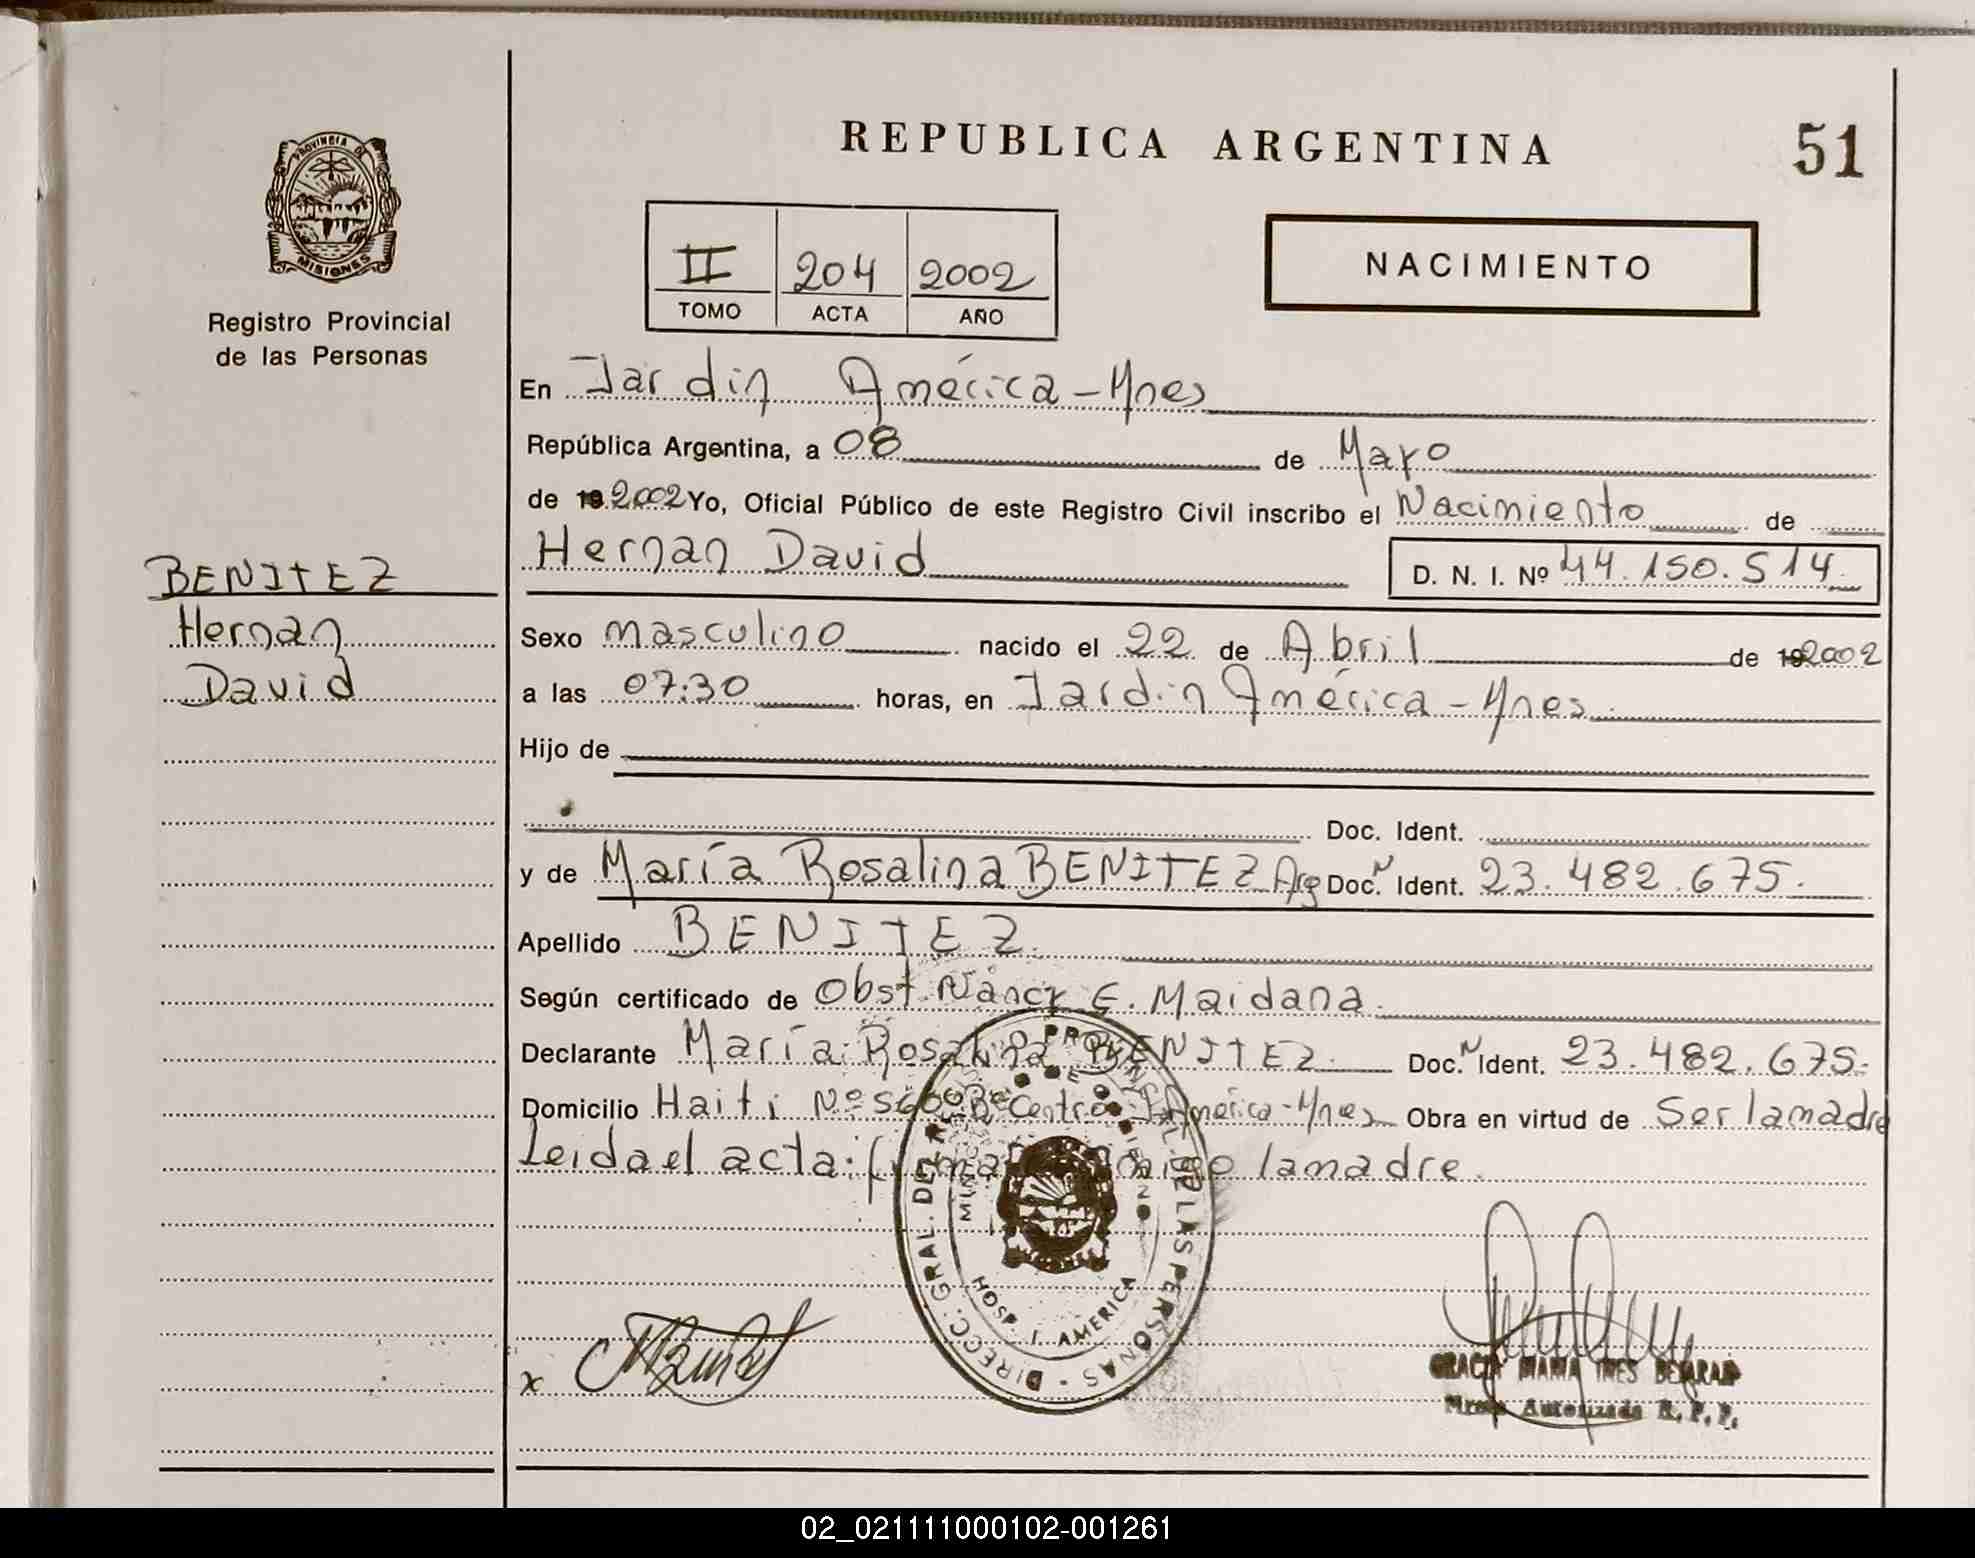 REPUBLICA ARGENTINA
51
PROVINCIA DE
MISIONES
Registro Provincial
de las Personas
II 204 2002
TOMO ACTA AÑO
NACIMIENTO
En Jardin América - Mnes
República Argentina, a 08 de Mayo
de 19 2002 Yo, Oficial Público de este Registro Civil inscribo el Nacimiento de
Hernan David
D. N. I. Nº 44.150.514
BENITEZ
Hernan
David
Sexo masculino nacido el 22 de Abril de 19 2002
a las 07:30 horas, en Jardin América - Mnes
Hijo de
Doc. Ident.
y de María Rosalina BENITEZ Arg Doc. N Ident. 23.482.675.
Apellido BENITEZ
Según certificado de Obst. Nancy E. Maidana
Declarante María Rosalina BENITEZ Doc. N Ident. 23.482.675.
Domicilio Haiti Nº Bº Centro J. América - Mnes Obra en virtud de Ser la madre
Leida el acta: firma la madre.
DIRECC. GRAL. DEL REG. PROVINCIAL DE LAS PERSONAS
HOSP. J. AMERICA
x
GRACIA MARIA INES BEJARAN
Autorizada R. P. P.
02_021111000102-001261